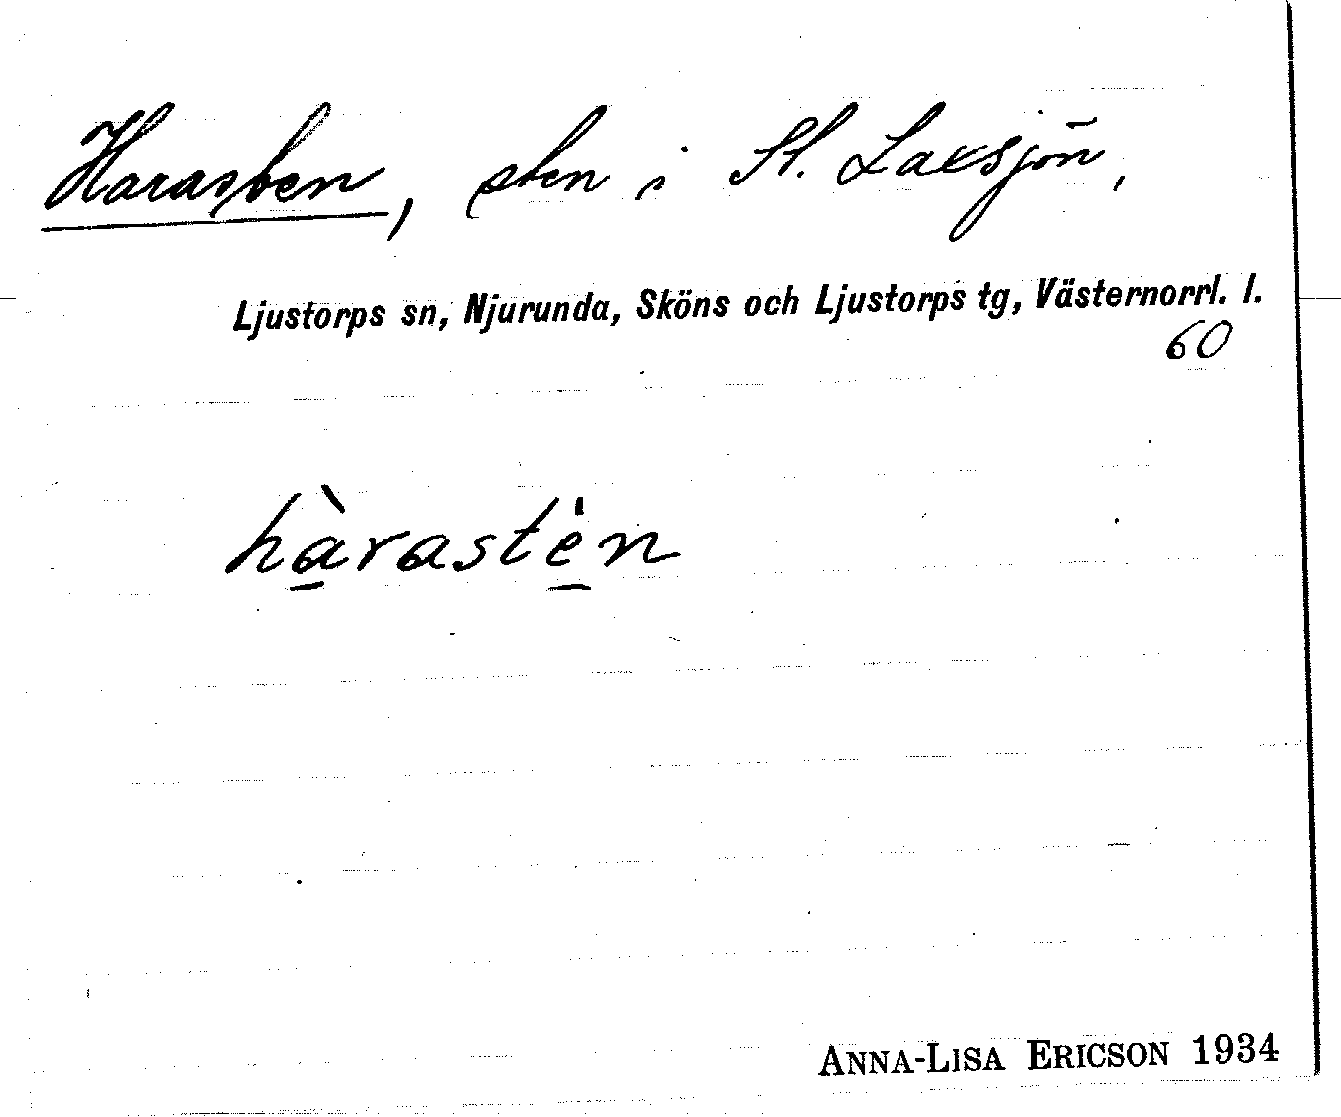 Harasten, sten i St. Laxsjön,
Ljustorps sn, Njurunda, Sköns och Ljustorps tg, Västernorrl. l.
60
hàrastèn
ANNA-LISA ERICSON 1934